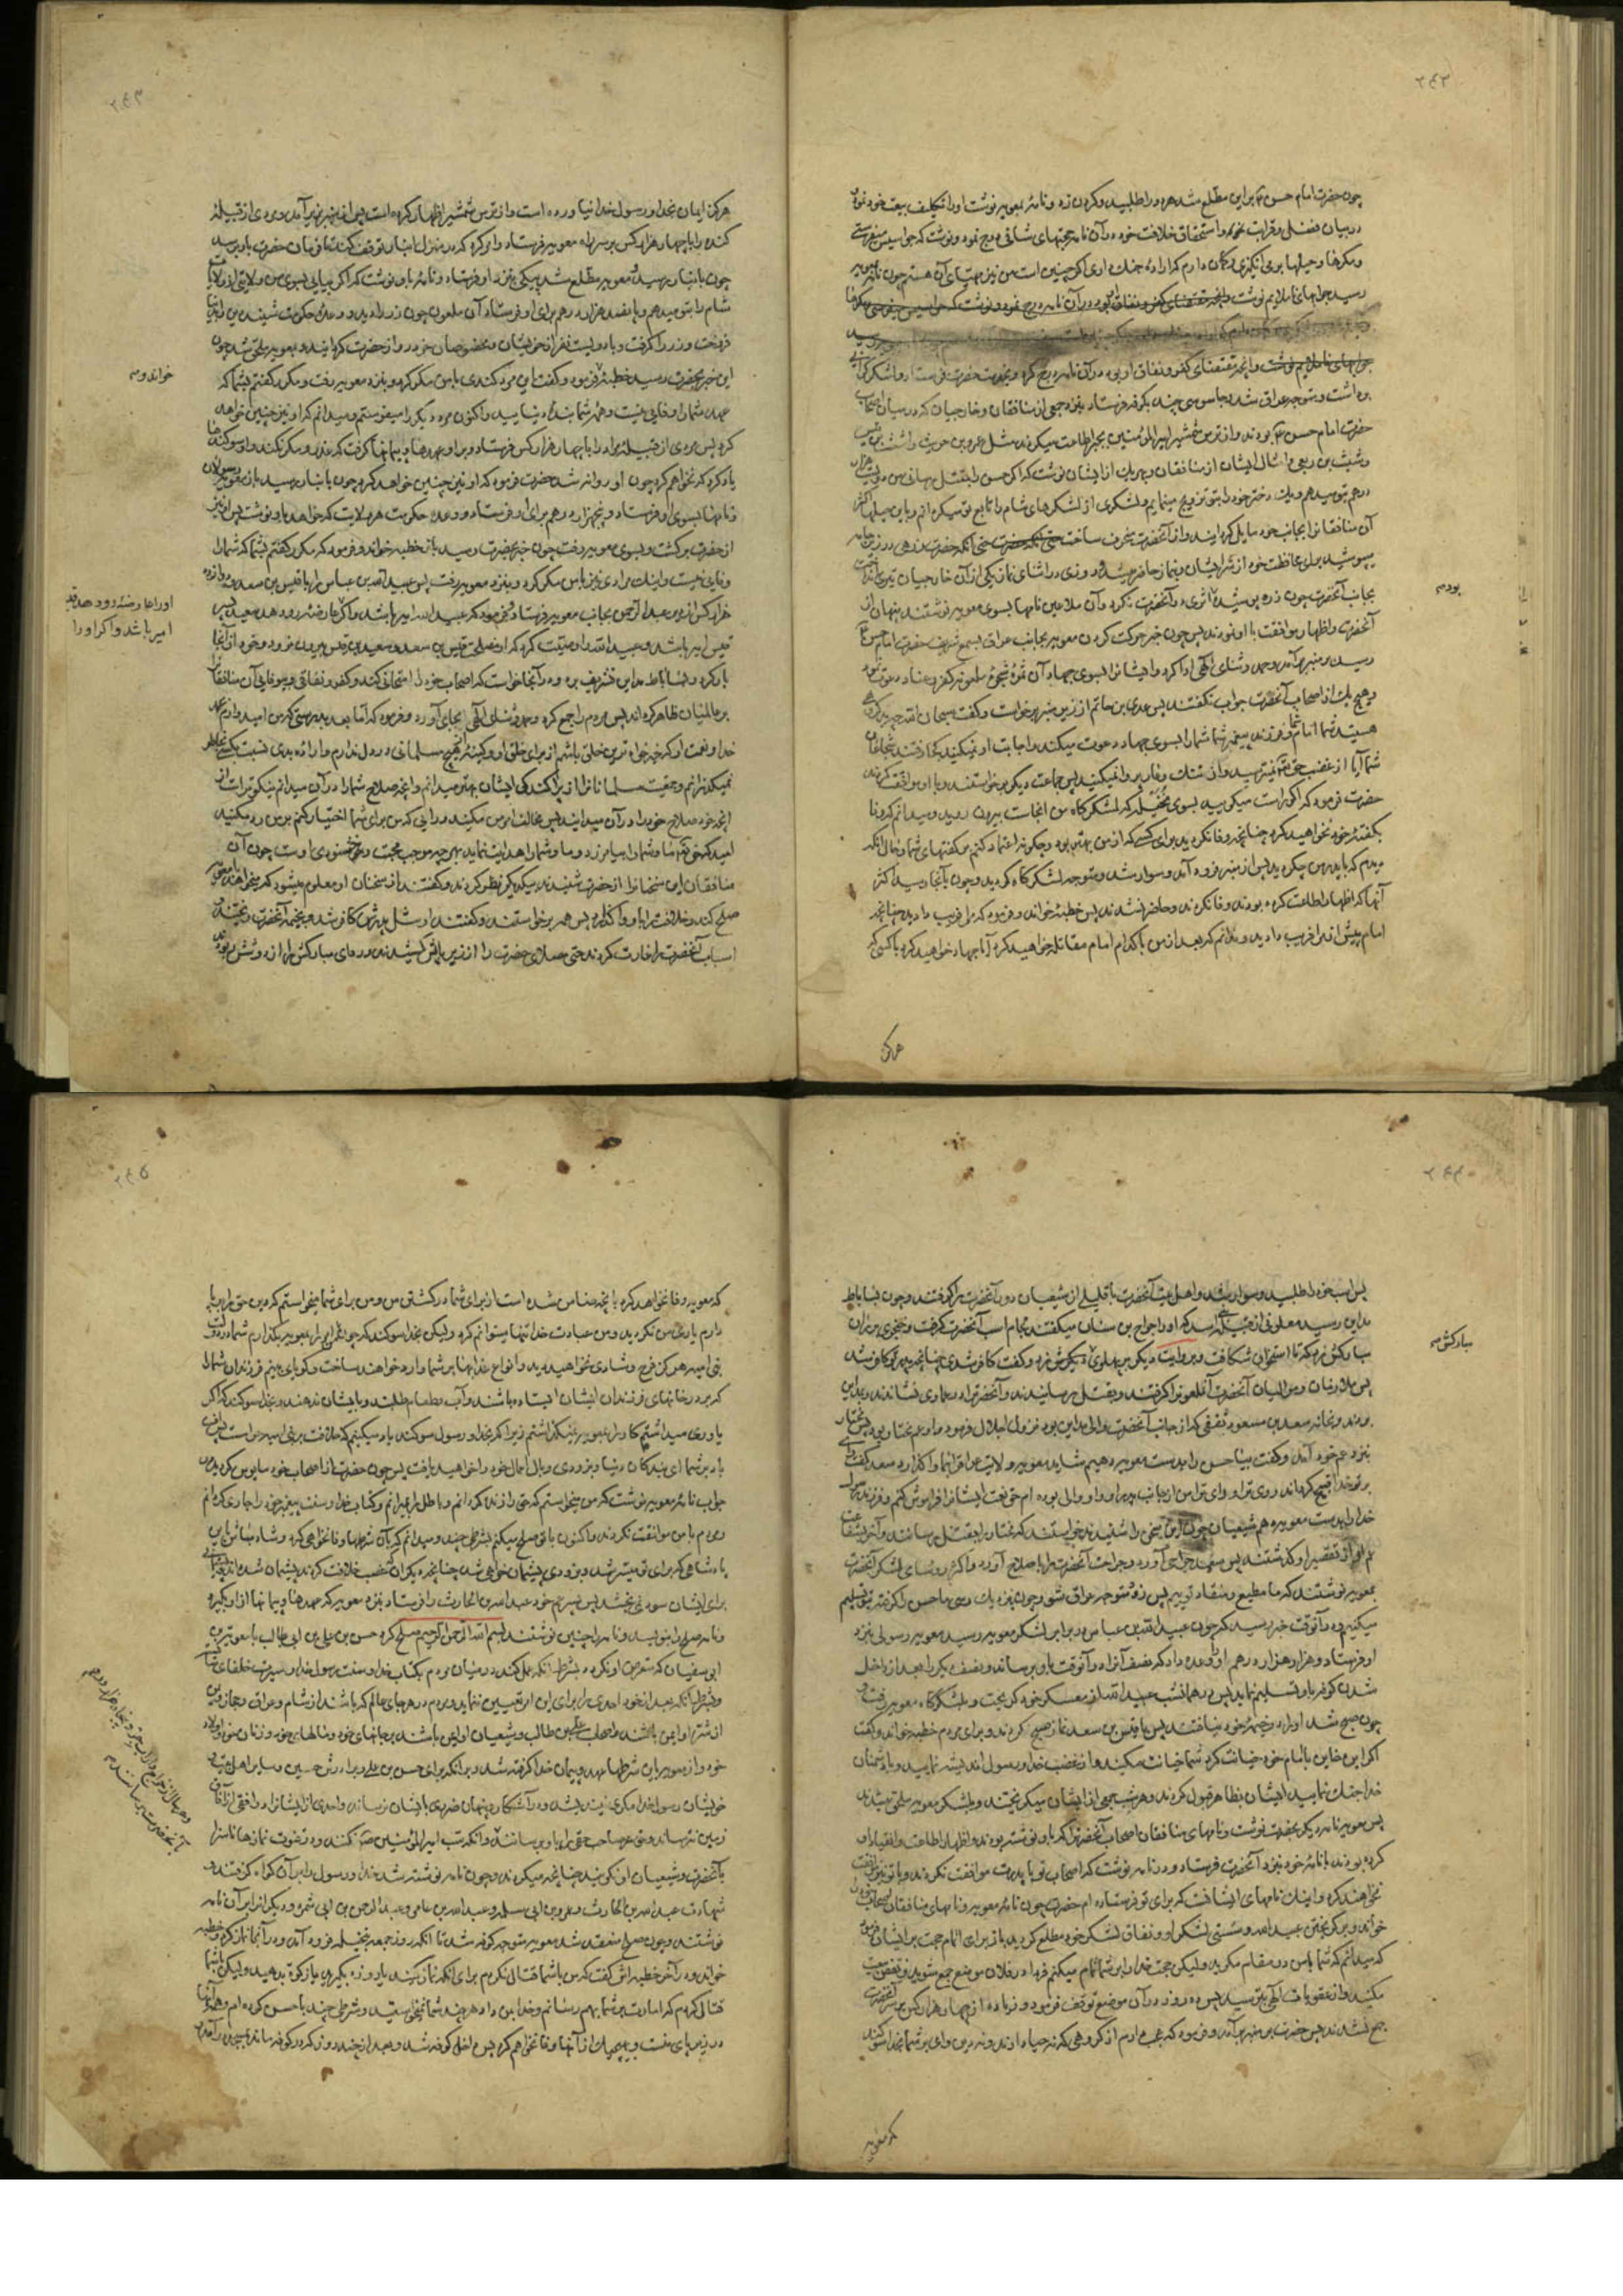 ۲۴۲
چون حضرت امام حسن براین مطلع شد هر دو را طلبید و کردن زد و نامهٔ بمعویه نوشت او را تکلیف بیعت خود نمود
در بیان فضل و قرابت خود و استحقاق خلافت خود در آن نامه حجتهای شافی درج نمود و نوشت که جواسیس میفرستی
و مکرها و حیلها برمی انگیزی و کمان دارم که اراده جنک داری اکر چنین است من نیز مهیای آن هستم چون نامه بمعویه
رسید جوابهای ناملایم نوشت
جوابهای ناملایم نوشت و آنچه مقتضای کفر و نفاق او بود در آن نامه درج کرد و بخدمت حضرت فرستاد و لشکر
برداشت و متوجه عراق شد و جاسوسی چند بکوفه فرستاد بنزد جمعی از منافقان و خارجیان که در میان اصحاب
حضرت امام حسن بودند و از ترس شمشیر امیرالمؤمنین بجبر اطاعت میکردند مثل عمرو بن حریث و اشعث بن قیس
و شبث بن ربعی و امثال ایشان از منافقان و بهریک از ایشان نوشت که اکر حسن را بقتل رسانی من دویست هزار
درهم بتو میدهم و یک دختر خود را بتو تزویج مینمایم و لشکری از لشکرهای شام را تابع تو میکردانم و باین حیلها اکثر
آن منافقانرا بجانب خود مایل کردانید و از آنحضرت منحرف ساخت حتی آنکه حضرت زرهی در زیر جامه
میپوشید برای محافظت خود از شر ایشان و بنماز حاضر میشد روزی در اثنای نماز یکی از آن خارجیان تیری انداخت
بجانب آنحضرت چون زره پوشیده اثری در آنحضرت نکرد و آن ملاعین نامها بسوی معویه نوشتند پنهان از
آنحضرت و اظهار موافقت با او نمودند پس چون خبر حرکت کردن معویه بجانب عراق بسمع شریف حضرت امام حسن
رسید بر منبر برآمد و حمد و ثنای الهی ادا کرد و ایشانرا بسوی جهاد آن
و هیچ یک از اصحاب آنحضرت جواب نکفتند پس عدی بن حاتم از زیر منبر برخواست و کفت سبحان الله چه بد کروهی
هستید شما امام شما و فرزند پیغمبر شما شما را بسوی جهاد دعوت میکند و اجابت او نمیکنید کجا رفتند شجاعان
شما آیا از غضب حق نمیترسید و از ننک و عار پروا نمیکنید پس جماعت دیکر برخواستند و با او موافقت کردند
حضرت فرمود که اکر راست میکویید بسوی نخیله که لشکرکاه من انجاست بیرون روید و میدانم که وفا
بکفتهٔ خود نخواهید کرد چنانچه وفا نکردید برای کسی که از من بهتر بود و چکونه اعتماد کنم بر کفتهای شما و حال آنکه
دیدم که با پدر من چکردید پس از منبر فرود آمد و سوار شد و متوجه لشکرکاه کردید و چون بآنجا رسید اکثر
آنها که اظهار اطاعت کرده بودند وفا نکردند و حاضر نشدند پس خطبهٔ خواند و فرمود که مرا فریب دادید چنانچه
امام پیش از مرا فریب دادید و ندانم که بعد از من با کدام امام مقاتله خواهید کرد آیا جهاد خواهید کرد با کسی که
بودم
هرکز
۲۴۳
هرکز ایمان بخدا و رسول خدا نیاورده است و از ترس شمشیر اظهار کرده است پس از منبر بزیر آمد و مردی از قبیلهٔ
کنده را با چهار هزار کس بر سر راه معویه فرستاد و امر کرد که در منزل انبار توقف کند تا فرمان حضرت باو برسد
چون بانبار رسید معویه مطلع شد پیکی بنزد او فرستاد و نامهٔ باو نوشت که اکر بیایی بسوی من ولایتی از ولایات
شام را بتو میدهم و پانصد هزار درهم برای او فرستاد آن ملعون چون زر را دید و وعده حکومت شنید دین را بدنیا
فروخت و زر را کرفت و با دویست نفر از خویشان و مخصوصان خود رو از حضرت کردانید و بمعویه ملحق شد چون
این خبر بحضرت رسید خطبهٔ فرمود و کفت این مرد کندی با من مکر کرد و بنزد معویه رفت و مکرر کفتم بشما که
عهد شما را وفایی نیست و همهٔ شما بندهٔ دنیایید و اکنون مرد دیکر را میفرستم و میدانم که او نیز چنین خواهد
کرد پس مردی از قبیلهٔ مراد را با چهار هزار کس فرستاد و بر او عهدها و پیمانها کرفت که غدر و مکر نکند و او سوکندها
یاد کرد که نخواهم کرد چون او روانه شد حضرت فرمود که او نیز چنین خواهد کرد چون بانبار رسید باز معویه رسولان
و نامها بسوی او فرستاد و پنجهزار درهم برای او فرستاد و وعده حکومت هر ولایت که خواهد باو نوشت پس او نیز
از حضرت برکشت و بسوی معویه رفت چون خبر بحضرت رسید باز خطبه خواند و فرمود که مکرر کفتم بشما که شما را
وفایی نیست و اینک مرادی نیز با من مکر کرد و بنزد معویه رفت پس عبید الله بن عباس را با قیس بن سعد و دوازده
هزار کس از دیر عبد الرحمن بجانب معویه فرستاد و فرمود که عبید الله امیر باشد و اکر عارضهٔ رو دهد سعید بن
قیس امیر باشد و عبید الله را وصیت کرد که از مصلحت قیس بن سعد و سعید بن قیس بیرون نرود و خود از آنجا
بار کرد و بساباط مداین تشریف برد و در آنجا خواست که اصحاب خود را امتحان کند و کفر و نفاق و بیوفایی آن منافقانرا
بر عالمیان ظاهر کرداند پس مردم را جمع کرد و حمد و ثنای الهی بجای آورد و فرمود که اما بعد بدرستی که من امید دارم بحمد
خدا و نعمت او که خیرخواه ترین خلق باشم از برای خلق او و کینهٔ از هیچ مسلمانی در دل ندارم و اراده بدی نسبت بکسی بخاطر
نمیکذرانم و جمعیت مسلمانانرا از پراکندکی ایشان بهتر میدانم و آنچه صلاح شما را در آن میدانم نیکوتر است از
آنچه خود صلاح خود را در آن میدانید پس مخالفت امر من مکنید و رایی که من برای شما اختیار کنم بر من رد مکنید
امید که حق تعالی ما و شما را بیامرزد و ما و شما را هدایت نماید بهرچه موجب محبت و خوشنودی اوست چون آن
منافقان این سخنانرا از حضرت شنیدند بیکدیکر نظر کردند و کفتند از سخنان او معلوم میشود که میخواهد با معویه
صلح کند و خلافت را باو واکذارد پس همه برخواستند و کفتند او مثل پدرش کافر شد و بخیمهٔ آنحضرت ریختند و
اسباب آنحضرت را غارت کردند حتی مصلای حضرت را از زیر پایش کشیدند و ردای مبارکش را از دوشش ربودند
خواند و
او را عارضهٔ رو دهد قیس
امیر باشد و اکر او را
۲۴۴
پس اسب خود را طلبید و سوار شد و اهل بیت آنحضرت با قلیلی از شیعیان دور آنحضرت را کرفتند و چون بساباط
مداین رسید ملعونی از قبیلهٔ اسد که او را جراح بن سنان میکفتند لجام اسب آنحضرت کرفت و خنجری بر ران
مبارکش زد که تا استخوان شکافت و بروایت دیکر بر پهلوی دیکرش زد و کفت کافر شدی چنانچه پدر تو کافر شد
پس ملازمان و موالیان آنحضرت آنملعونرا کرفتند و بقتل رسانیدند و آنحضرت را در عماری نشاندند و بمداین
بردند و بخانه سعد بن مسعود ثقفی که از جانب آنحضرت والی مداین بود نزول اجلال فرمود و او عم مختار بود پس مختار
بنزد عم خود آمد و کفت بیا حسن را بدست معویه دهیم شاید معویه ولایت عراق را بما واکذارد سعد کفت وای
بر تو خدا قبیح کرداند روی ترا و رای ترا من از جانب پدر او و او والی بوده ام حق نعمت ایشانرا فراموش کنم و فرزند رسول
خدا را بدست معویه دهم شیعیان چون این سخن را شنیدند خواستند که مختار را بقتل رسانند و آخر بشفاعت
عم او از تقصیر او کذشتند پس سعد جراحی آورد و جراحت آنحضرت را باصلاح آورد و اکثر رؤسای لشکر آنحضرت
بمعویه نوشتند که ما مطیع و منقاد توییم پس زود متوجه عراق شو و چون نزدیک رسی ما حسن را کرفته بتو تسلیم
میکنیم و در آنوقت خبر رسید که چون عبید الله بن عباس در برابر لشکر معویه رسید معویه رسولی بنزد
او فرستاد و هزار هزار درهم او را وعده داد که نصف آنرا در آنوقت باو برساند و نصف دیکر را بعد از داخل
شدن کوفه باو تسلیم نماید پس در همانشب عبید الله از معسکر خود کریخت و بلشکرکاه معویه رفت و
چون صبح شد او را در خیمهٔ خود نیافتند پس با قیس بن سعد نماز صبح کردند و برای مردم خطبه خواند و کفت
اکر این خاین با امام خود خیانت کرد شما خیانت مکنید و از غضب خدا و رسول اندیشه نمایید و با دشمنان
خدا جنک نمایید ایشان بظاهر قبول کردند و هر شب جمعی از ایشان میکریختند و بلشکر معویه ملحق میشدند
پس معویه نامه دیکر بحضرت نوشت و نامهای منافقان اصحاب آنحضرت را که باو نوشته بودند و اظهار اطاعت و انقیاد او
کرده بودند با نامهٔ خود بنزد آنحضرت فرستاد و در نامه نوشت که اصحاب تو با پدرت موافقت نکردند و با تو نیز موافقت
نخواهند کرد و اینک نامهای ایشانست که برای تو فرستاده ام حضرت چون نامهٔ معویه و نامهای منافقان اصحاب خود را
خواند و بر کریختن عبید الله و سستی لشکر او و نفاق لشکر خود مطلع کردید باز برای اتمام حجت بر ایشان فرمود
که میدانم که شما با من در مقام مکرید و لیکن حجت خدا را بر شما تمام میکنم فردا در فلان موضع جمع شوید و نقض بیعت
مکنید و از عقوبات الهی بترسید پس ده روز در آن موضع توقف فرمود و زیاده از چهار هزار کس بر سر آنحضرت
جمع نشدند پس حضرت بر منبر برآمد و فرمود که عجب دارم از کروهی که نه حیا دارند و نه دین وای بر شما بخدا سوکند
مبارکش
که معویه
۲۴۵
که معویه وفا نخواهد کرد با آنچه ضامن شده است از برای شما در کشتن من و من برای شما میخواستم که دین حق را برپا
دارم یاری من نکردید و من عبادت خدا تنها میتوانم کرد و لیکن بخدا سوکند که چون امر را بمعویه بکذارم شما در دولت
بنی امیه هرکز فرح و شادی نخواهید دید و انواع عذابها بر شما وارد خواهند ساخت و کویا می بینم فرزندان شما را
که بر در خانهای فرزندان ایشان ایستاده باشند و آب و طعام طلبند و بایشان ندهند و بخدا سوکند که اکر
یاوری میداشتم کار را بمعویه نمیکذاشتم زیرا که بخدا و رسول سوکند یاد میکنم که خلافت بر بنی امیه حرام است پس اف
باد بر شما ای بندکان دنیا و بزودی وبال اعمال خود را خواهید یافت پس چون حضرت از اصحاب خود مایوس کردید در
جواب نامهٔ معویه نوشت که من میخواستم که حق را زنده کردانم و باطل را بمیرانم و کتاب خدا و سنت پیغمبر خود را جاری کردانم
مردم با من موافقت نکردند و اکنون با تو صلح میکنم بشرطی چند و میدانم که بآن شرطها وفا نخواهی کرد و شاد مباش باین
پادشاهی که برای تو میسر شد و بزودی پشیمان خواهی شد چنانچه دیکران که غصب خلافت کردند پشیمان شده اند و پشیمانی
برای ایشان سودی نمیبخشد پس پسر عم خود عبد الله بن الحارث را فرستاد بنزد معویه که عهدها و پیمانها از او بکیرد
و نامه صلح را بنویسد و نامه را چنین نوشتند بسم الله الرحمن الرحیم صلح کرد حسن بن علی بن ابی طالب با معویة بن
ابی سفیان که متعرض او نکردد بشرط آنکه عمل کند در میان مردم بکتاب خدا و سنت رسول خدا و سیرت خلفای شایسته
و بشرط آنکه بعد از خود احدی را برای این امر تعیین ننماید و مردم در هر جای عالم که باشند از شام و عراق و حجاز و یمن
از شر او ایمن باشند و اصحاب علی بن ابی طالب و شیعیان او ایمن باشند بر جانهای خود و مالهای خود و زنان خود و اولاد
خود و از معویه باین شرطها عهد و پیمان خدا کرفته شد و بر آنکه برای حسن بن علی و برادرش حسین و سایر اهل بیت و
خویشان رسول خدا مکری نیندیشد و در آشکار و پنهان ضرری بایشان نرساند و احدی از ایشانرا در افقی از آفاق
زمین نترساند و حق هر صاحب حقی را باو برسانند و آنکه سب امیرالمؤمنین نکنند و در قنوت نمازها ناسزا
بآنحضرت و شیعیان او نکویند چنانچه میکردند و چون نامه نوشته شد خدا و رسول را بر آن کواه کرفتند و
شهادت عبد الله بن الحارث و عمرو بن ابی سلمه و عبد الله بن عامر و عبد الرحمن بن ابی سمره و دیکرانرا بر آن نامه
نوشتند و چون صلح منعقد شد معویه متوجه کوفه شد تا آنکه روز جمعه بنخیله فرود آمد و در آنجا نماز کرد و خطبه
خواند و در آخر خطبه اش کفت که من با شما قتال نکردم برای آنکه نماز کنید یا روزه بکیرید یا زکوة بدهید و لیکن با شما
قتال کردم که امارت بر شما بهم رسانم و خدا بمن داد هر چند شما نمیخواستید و شرطی چند با حسن کرده ام و همهٔ آنها
در زیر پای منست و بهیچیک از آنها وفا نخواهم کرد پس داخل کوفه شد و بعد از چند روز که در کوفه ماند بمسجد درآمد
و هر سال از خراج داراب جرد پنجاه هزار درهم
بآنحضرت برسانند